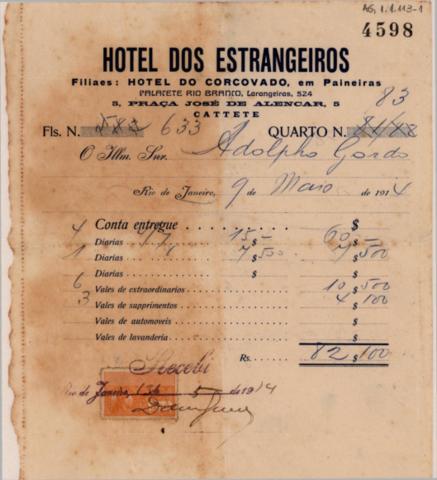 AG.1.1.113-1
4598
HOTEL DOS ESTRANGEIROS
Filiaes: HOTEL DO CORCOVADO, em Paineiras
PALACETE RIO BRANCO, Larangeiras, 524
3, PRAÇA JOSÉ DE ALENCAR, 5
CATTETE
83
Fls. N. 583 633 QUARTO N.
O Illm. Snr. Adolpho Gordo
Rio de Janeiro, 9 de Maio de 1914
Conta entregue $
4 Diarias 15 $ — 60 $ —
1 Diarias 7 $ 500 7 $ 500
Diarias $ $
6 Vales de extraordinarios 10 $ 500
3 Vales de supprimentos 4 $ 100
Vales de automoveis $
Vales de lavanderia $
Rs. 82 $ 100
Recebi
Rio de Janeiro, 5 de 1914